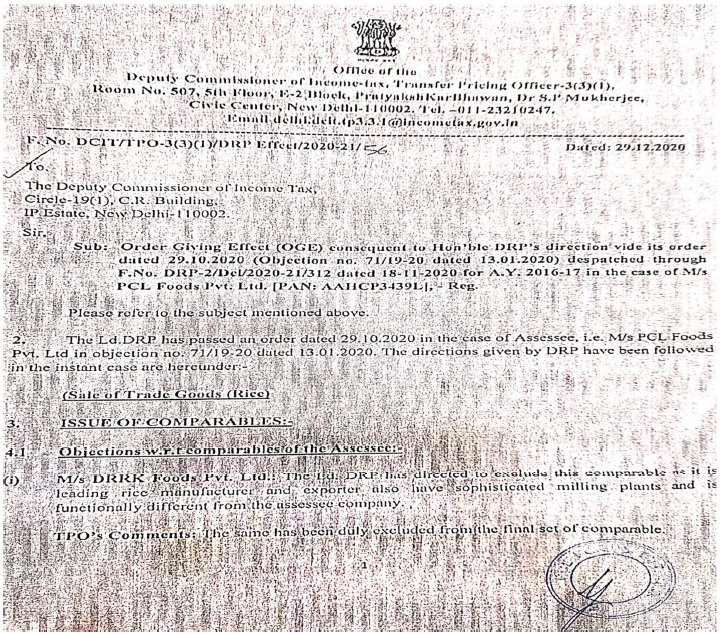 Office of the
Deputy Commissioner of Income-tax, Transfer Pricing Officer-3(3)(1),
Room No. 507, 5th Floor, E-2 Block, PratyakshKarBhawan, Dr S.P Mukherjee,
Civic Center, New Delhi-110002. Tel. –011-23210247.
Email delhi.dcit.tp3.3.1@incometax.gov.in
F. No. DCIT/TPO-3(3)(1)/DRP Effect/2020-21/56 Dated: 29.12.2020
To.
The Deputy Commissioner of Income Tax,
Circle-19(1), C.R. Building,
IP Estate, New Delhi-110002.
Sir.
Sub: Order Giving Effect (OGE) consequent to Hon'ble DRP's direction vide its order
dated 29.10.2020 (Objection no. 71/19-20 dated 13.01.2020) despatched through
F.No. DRP-2/Del/2020-21/312 dated 18-11-2020 for A.Y. 2016-17 in the case of M/s
PCL Foods Pvt. Ltd. [PAN: AAHCP3439L], - Reg.
Please refer to the subject mentioned above.
2. The Ld.DRP has passed an order dated 29.10.2020 in the case of Assessee, i.e. M/s PCL Foods
Pvt. Ltd in objection no. 71/19-20 dated 13.01.2020. The directions given by DRP have been followed
in the instant case are hereunder:-
(Sale of Trade Goods (Rice)
3. ISSUE OF COMPARABLES:-
4.1 Objections w.r.t comparables of the Assessee:-
(i) M/s DRRK Foods Pvt. Ltd.: The Ld. DRP has directed to exclude this comparable as it is
leading rice manufacturer and exporter also have sophisticated milling plants and is
functionally different from the assessee company.
TPO's Comments: The same has been duly excluded from the final set of comparable.
1